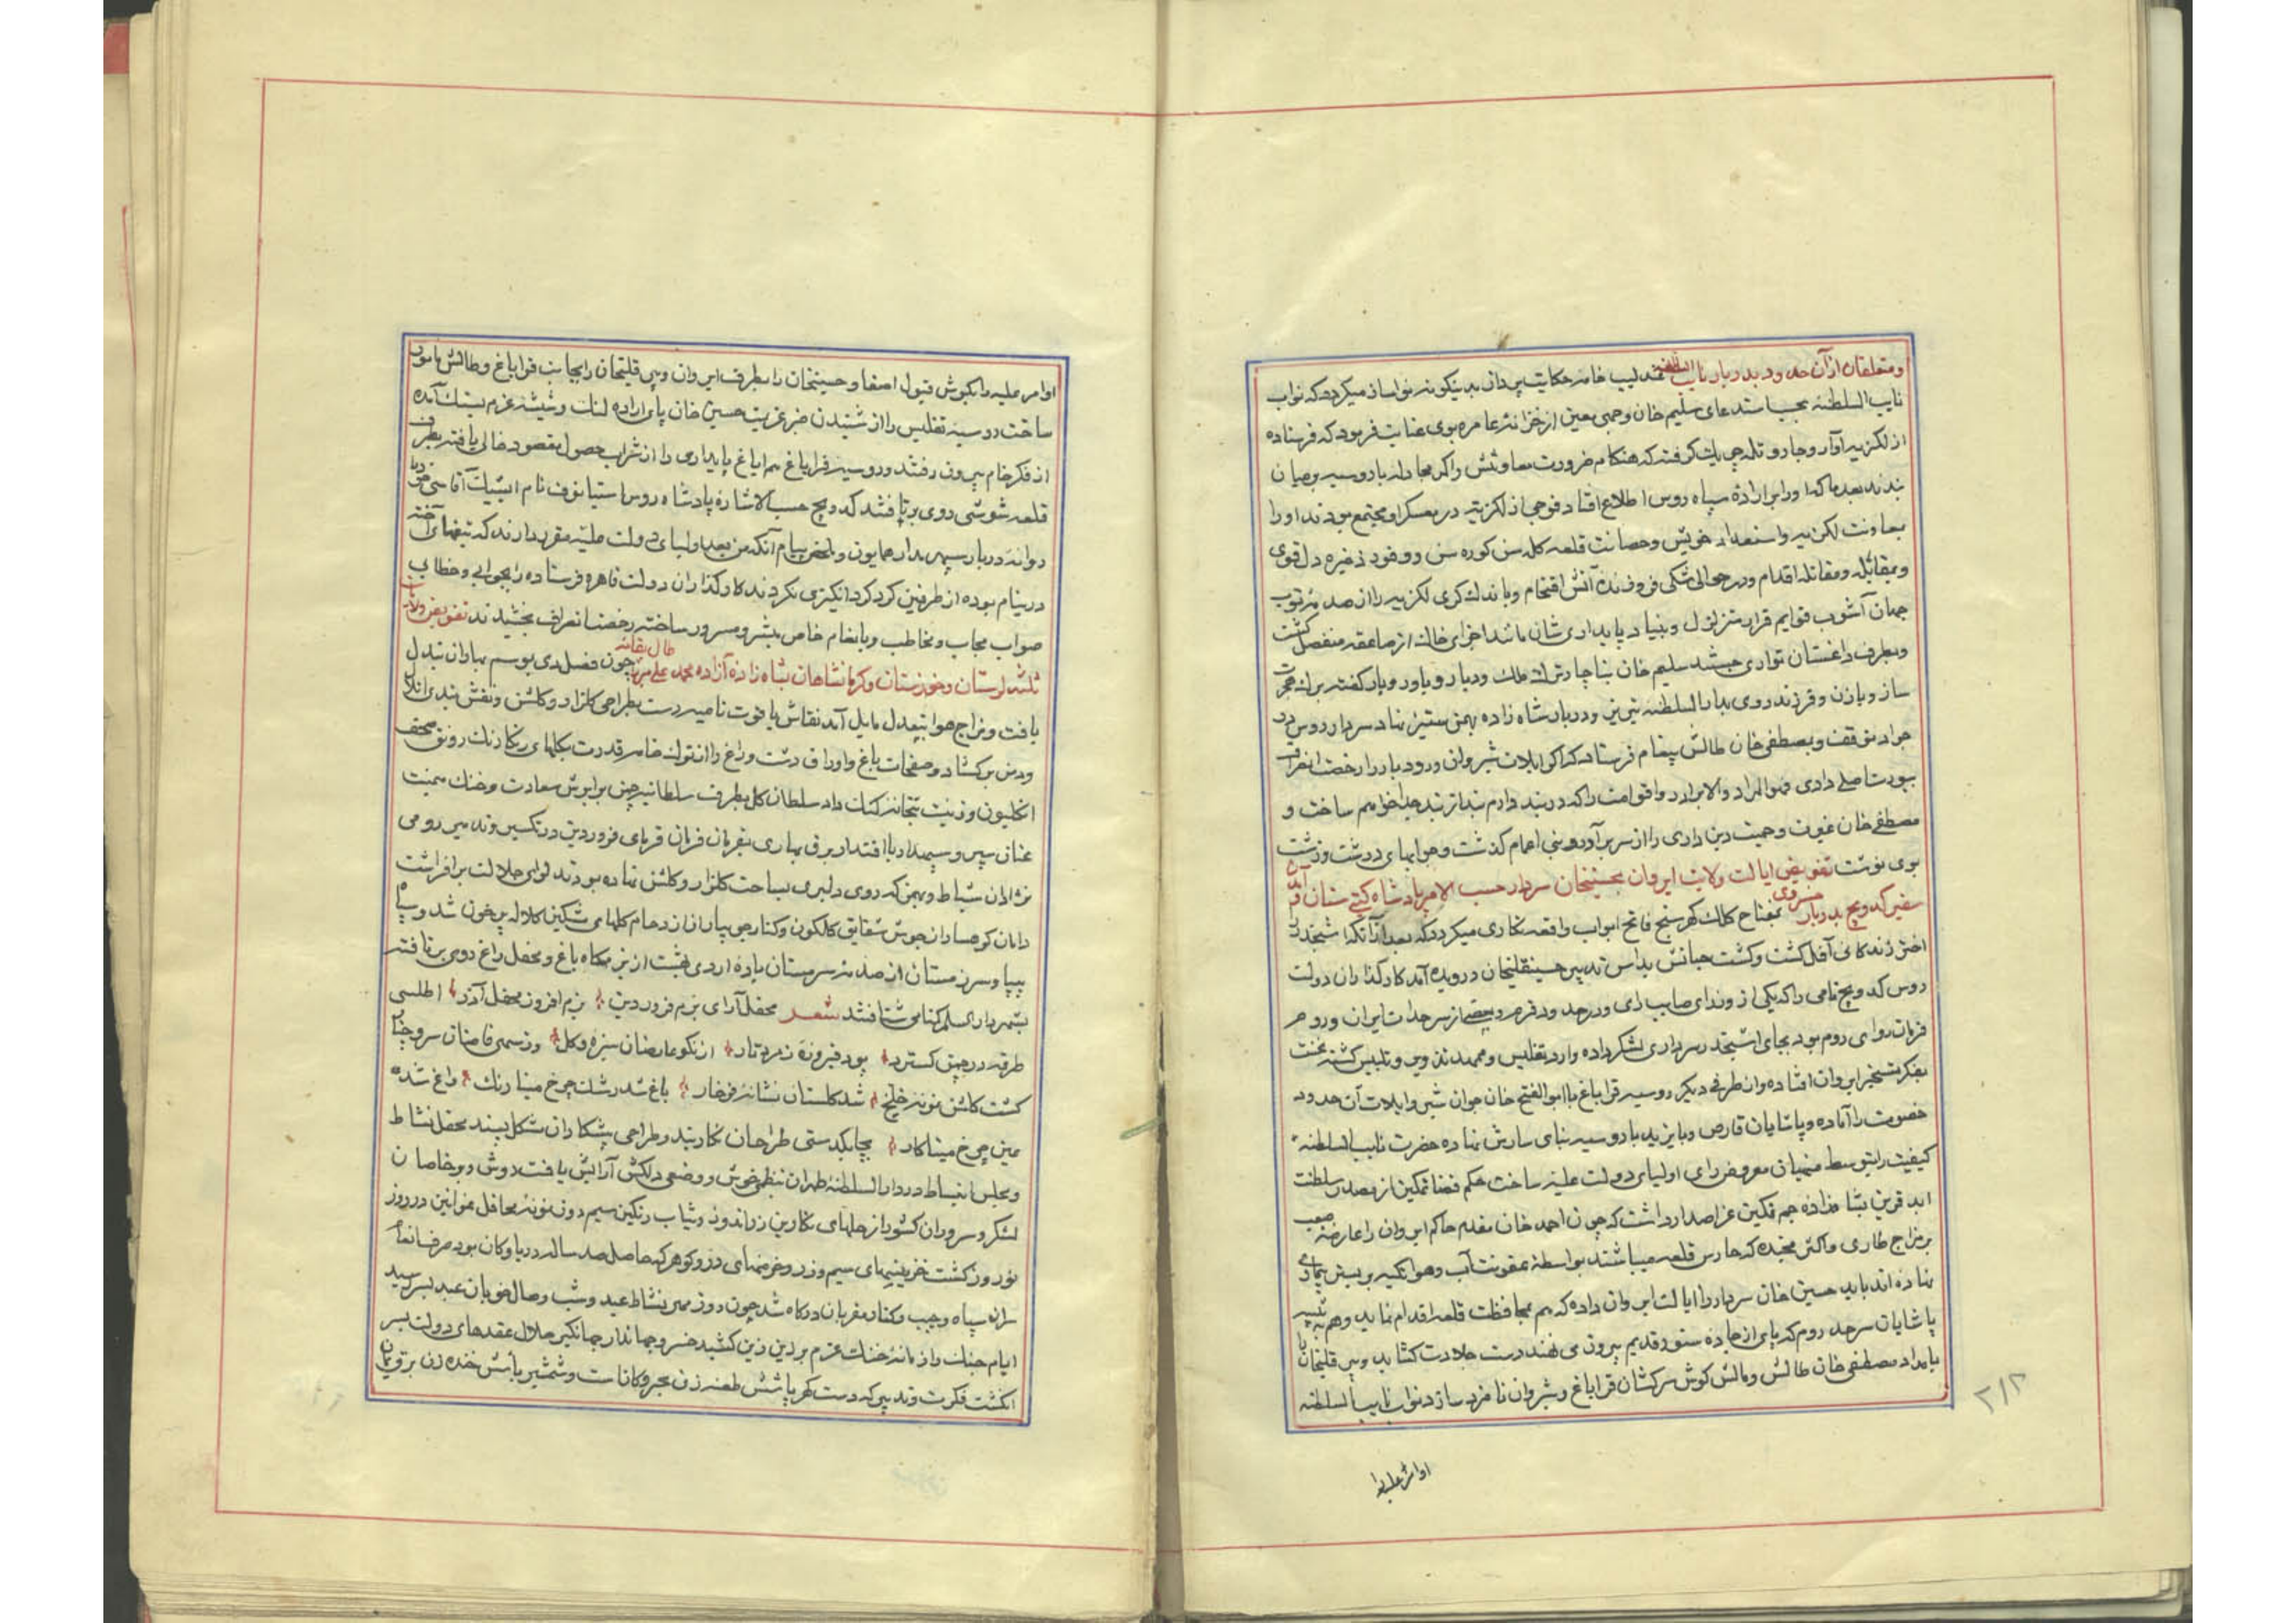 و متعلقان از آن حدود بدربار نایب السلطنه عندلیب خامه حکایت پرداز بدینگونه نواساز میکردد که نواب
نایب السلطنه بحسب استدعای سلیم خان وجهی معین از خزانهٔ عامره بوی عنایت فرمود که فرستاده
از لکزیه آوار و جار و تله جمعیت کرفته که هنکام ضرورت معاونتش را کمر مجادله با روسیه بر میان
بندند بعد ما که او را بر ارادهٔ سپاه روس اطلاع افتاد فوجی از لکزیه در معسکر او مجتمع بودند او را
بمعاونت لکزیه و استعداد خویش و حصانت قلعه کله سن کوره سن و وفور ذخیره دل قوی
و بمقابله و مقاتله اقدام و در حوالی شکی فروزندهٔ آتش اقتحام و باندک کری لکزیه را از صدمهٔ توپ
جهان آشوب قوایم قرار متزلزل و بنیاد پایداری شان مانند اجزای خاک از صاعقه منفصل کشت
و بطرف داغستان تواری جستند سلیم خان بناچار ترک ملک و دیار و یاور و یار کفته برک هجرت
ساز و با زن و فرزند روی بدار السلطنه تبریز و دربار شاه زاده بهمن ستیز نهاد سردار روس در
جواد متوقف و بمصطفی خان طالش پیغام فرستاد که اکر ایلات شیروان و رودبار را رخصت انصراف
بیورت اصلی دادی فهو المراد والا برادر و اقوامت را که در بند دارم بند از بند جدا خواهم ساخت و
مصطفی خان غیرت و حمیت دین داری را از سر برآورده و بنی اعمام کذشت و جوابهای درشت و زشت
بوی نوشت تفویض ایالت ولایت ایروان بحسینخان سردار حسب الامر پادشاه کیتی ستان و آمدن
سفیر کدویچ بدربار خسروی بمفتاح کلک کهر سنج فاتح ابواب واقعه نکاری میکردد که بعد از آنکه اشپخدر را
اختر زندکانی آفل کشت و کشت حیاتش بداس تدبیر حسینقلیخان درویده آمد کارکذاران دولت
روس کدویچ نامی را که یکی از وزرای صایب رای و در حدود قرم و بعضی از سرحدات ایران و روم
فرمان روای روم بود بجای اشپخدر سرداری لشکر داده وارد تفلیس و ممهد تزویر و تلبیس کشته نخست
بفکر تسخیر ایروان افتاده و از طرفی دیکر روسیه قراباغ با ابوالفتح خان جوان شیر و ایلات آن حدود
خصومت را آماده و پاشایان قارص و بایزید با روسیه بنای سازش نهاده حضرت نایب السلطنه
کیفیت را بتوسط منهیان معروض رای اولیای دولت علیه ساخت حکم قضا تمکین از مصدر سلطنت
ابد قرین بشاهزاده جم تمکین عز اصدار داشت که چون احمد خان مقدم حاکم ایروان را عارضهٔ صعب
بر مزاج طاری و اکثر جنده که حارس قلعه میباشند بواسطهٔ عفونت آب و هوا تکیه بر بستر بیماری
نهاده اند باید حسین خان سردار را ایالت ایروان داده که هم بمحافظت قلعه اقدام نماید و هم به تنبیه
پاشایان سرحد روم که پای از جاده ستور قدیم بیرون می نهند دست جلادت کشاید و پیر قلیخان را
بامداد مصطفی خان طالش و مالش کوش سرکشان قراباغ و شیروان نامزد سازد نواب نایب السلطنه
اوامر علیه را
۲۱۲
اوامر علیه را بکوش قبول اصغا و حسینخان را بطرف ایروان و پیر قلیخان را بجانب قراباغ و طالش مامور
ساخت روسیه تفلیس را از شنیدن خبر عزیمت حسین خان پای اراده لنک و شیشه عزم بسنک آمده
از فکر خام بیرون رفتند و روسیه قراباغ هم ایاغ پایداری را از شراب حصول مقصود خالی یافته بطرف
قلعه شوشی روی برتافتند کدویچ حسب الاشارهٔ پادشاه روس استپانوف نام ایشیک آقاسی خود را
روانهٔ دربار سپهر مدار همایون و ملخص پیام آنکه من بعد اولیای دولت علیه مقرر دارند که تیغهای آخته
در نیام بوده از طرفین کرد کرد انکیزی نکردند کارکذاران دولت قاهره فرستاده را بجوابی و خطابی
صواب مجاب و مخاطب و بانعام خاص مبشر و مسرور ساخته رخصت انصراف بخشیدند تفویض ولایات
ثلثه لرستان و خوزستان و کرمانشاهان بشاه زاده آزاده محمد علی میرزا طال بقائه چون فصل دی بموسم بهاران تبدل
یافت و مزاج هوا بتعدل مایل آمد نقاش یا قوت نامیه دست بطراحی کلزار و کلشن و نقش بندی اتلال
و دمن برکشاد و صفحات باغ و اوراق دشت و راغ را از نوک خامه قدرت بکلهای رنکارنک رونق صحف
انکلیون و زینت بتخانه کنک داد سلطان کل بطرف سلطانیه چمن بر ابرش سعادت و خنک میمنت
عنان سپر و سپهدار با اقتدار برق بهاری بفرمان قرمان فرمای فروردین در تکسیر وند میر رومی
نژادان شباط و بهمن که روی دلیری بساحت کلزار و کلشن نهاده بودند لوای جلالت برافراشت
دامان کوهساران از جوش شقایق کلکون و کنار جویباران از زحام کلهای مشکین کلاله پر خون شد و سپاه
بیپا و سر زمستان از صدمهٔ سرمستان بادهٔ اردی بهشت از بزمکاه باغ و محفل راغ روی برتافته
بتیمرداری سلم کنامی شتافتند شعر محفل آرای بزم فروردین بزم افروز محفل آذر اطلسی
طرفه در چمن کسترد بود فیروزه زمرد تار از نکو عارضان سبزه و کل وز سمی قامتان سرو چنار
کشت کلشن نمونهٔ خلخ شد کلستان نشانهٔ فرخار باغ شد رشک چرخ مینا رنک راغ شد
عین چرخ مینا کار بچابکدستی طراحان نکاربند و طراحی پیشکاران مشکل پسند محفل نشاط
و مجلس انبساط در دار السلطنهٔ طهران بنظمی خوش و وضعی دلکش آرایش یافت دوش و بر خاصان
لشکر و سروران کشور از حلهای نکارین زراندود و ثیاب رنکین سیم دوز نمونهٔ محافل غوانین در روز
نوروز کشت خزینهای سیم و زر و خرمنهای در و کوهر که حاصل صد ساله دریا و کان بود صرف انعام
سران سپاه و جیب و کنار مقربان درکاه شد چون روز مهر نشاط عید و شب وصال خوبان عبد بسر رسید
ایام جنک را زمانه خنک عزم بر زین زرین کشید خسرو جهاندار جهانکیر حلال عقدهای دولت بسر
انکشت فکرت و تدبیر که دست کهر پاشش طعنه زن بحر و کانست و شمشیر بأسش خنده زن برق یمان